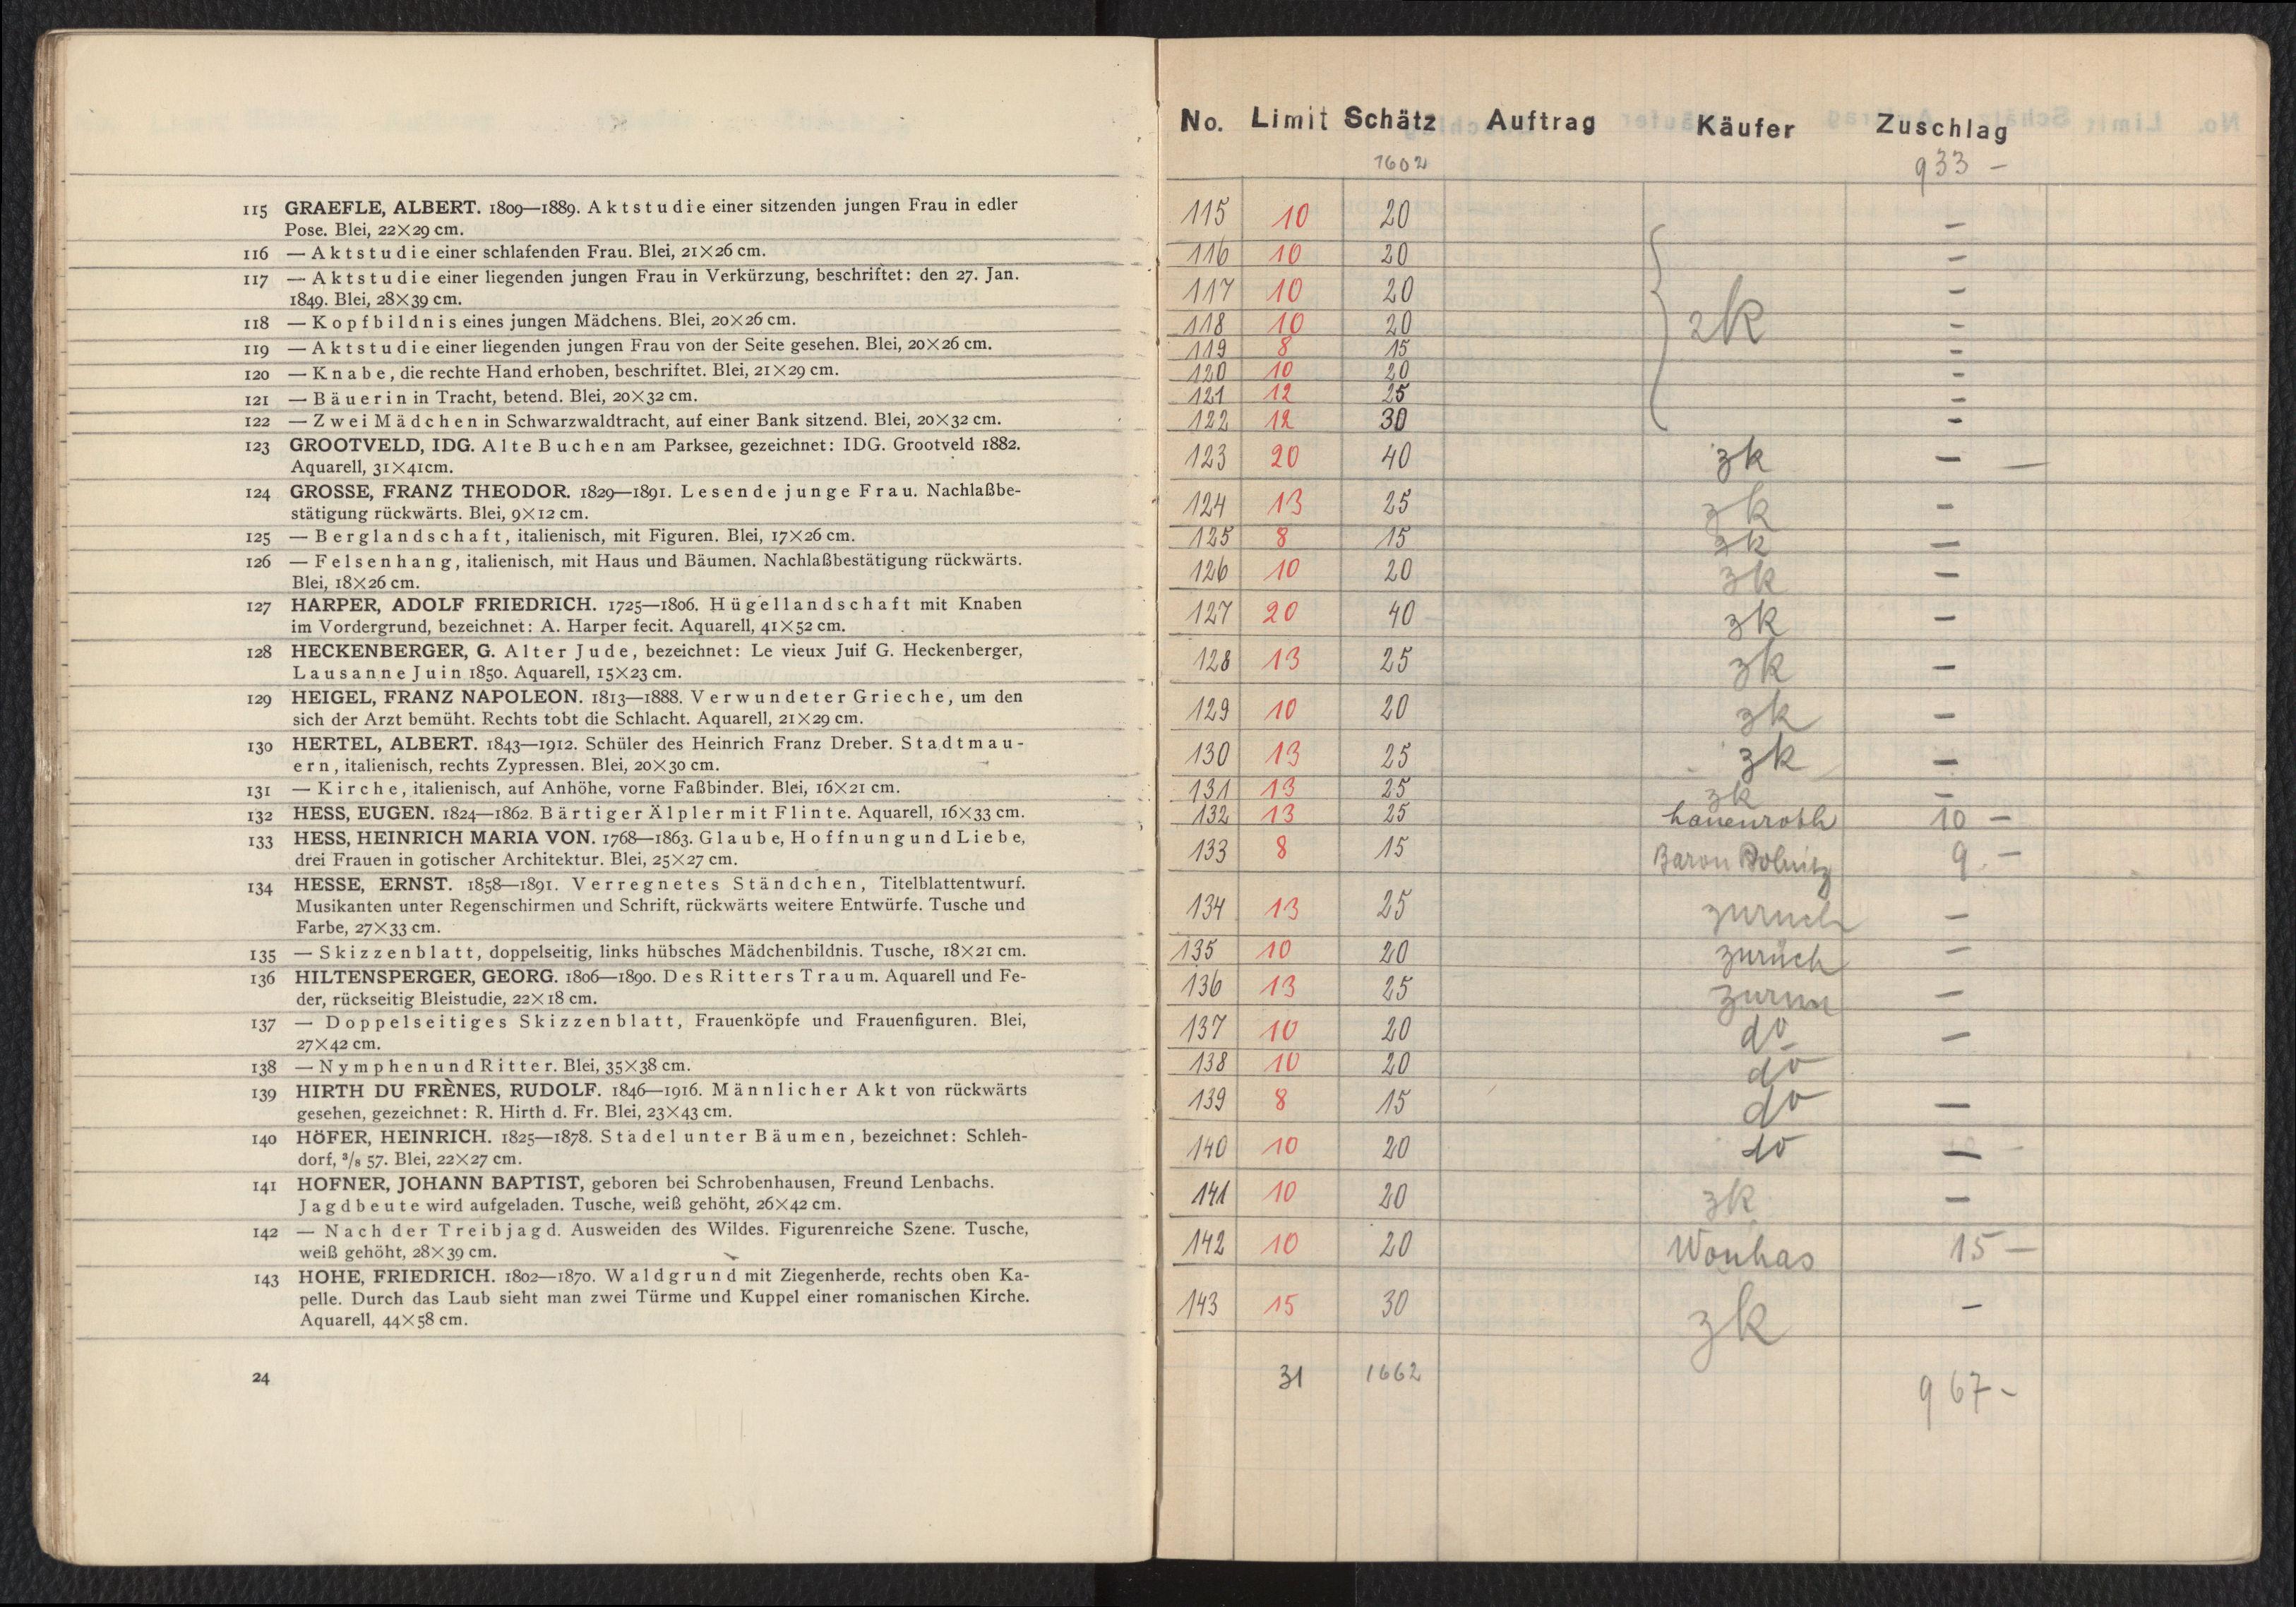 115 GRAEFLE, ALBERT. 1809—1889. Aktstudie einer sitzenden jungen Frau in edler
Pose. Blei, 22×29 cm.
116 — Aktstudie einer schlafenden Frau. Blei, 21×26 cm.
117 — Aktstudie einer liegenden jungen Frau in Verkürzung, beschriftet: den 27. Jan.
1849. Blei, 28×39 cm.
118 — Kopfbildnis eines jungen Mädchens. Blei, 20×26 cm.
119 — Aktstudie einer liegenden jungen Frau von der Seite gesehen. Blei, 20×26 cm.
120 — Knabe, die rechte Hand erhoben, beschriftet. Blei, 21×29 cm.
121 — Bäuerin in Tracht, betend. Blei, 20×32 cm.
122 — Zwei Mädchen in Schwarzwaldtracht, auf einer Bank sitzend. Blei, 20×32 cm.
123 GROOTVELD, IDG. Alte Buchen am Parksee, gezeichnet: IDG. Grootveld 1882.
Aquarell, 31×41cm.
124 GROSSE, FRANZ THEODOR. 1829—1891. Lesende junge Frau. Nachlaßbe-
stätigung rückwärts. Blei, 9×12 cm.
125 — Berglandschaft, italienisch, mit Figuren. Blei, 17×26 cm.
126 — Felsenhang, italienisch, mit Haus und Bäumen. Nachlaßbestätigung rückwärts.
Blei, 18×26 cm.
127 HARPER, ADOLF FRIEDRICH. 1725—1806. Hügellandschaft mit Knaben
im Vordergrund, bezeichnet: A. Harper fecit. Aquarell, 41×52 cm.
128 HECKENBERGER, G. Alter Jude, bezeichnet: Le vieux Juif G. Heckenberger,
Lausanne Juin 1850. Aquarell, 15×23 cm.
129 HEIGEL, FRANZ NAPOLEON. 1813—1888. Verwundeter Grieche, um den
sich der Arzt bemüht. Rechts tobt die Schlacht. Aquarell, 21×29 cm.
130 HERTEL, ALBERT. 1843—1912. Schüler des Heinrich Franz Dreber. Stadtmau-
ern, italienisch, rechts Zypressen. Blei, 20×30 cm.
131 — Kirche, italienisch, auf Anhöhe, vorne Faßbinder. Blei, 16×21 cm.
132 HESS, EUGEN. 1824—1862. Bärtiger Älpler mit Flinte. Aquarell, 16×33 cm.
133 HESS, HEINRICH MARIA VON. 1768—1863. Glaube, Hoffnung und Liebe,
drei Frauen in gotischer Architektur. Blei, 25×27 cm.
134 HESSE, ERNST. 1858—1891. Verregnetes Ständchen, Titelblattentwurf.
Musikanten unter Regenschirmen und Schrift, rückwärts weitere Entwürfe. Tusche und
Farbe, 27×33 cm.
135 — Skizzenblatt, doppelseitig, links hübsches Mädchenbildnis. Tusche, 18×21 cm.
136 HILTENSPERGER, GEORG. 1806—1890. Des Ritters Traum. Aquarell und Fe-
der, rückseitig Bleistudie, 22×18 cm.
137 — Doppelseitiges Skizzenblatt, Frauenköpfe und Frauenfiguren. Blei,
27×42 cm.
138 — Nymphen und Ritter. Blei, 35×38 cm.
139 HIRTH DU FRÈNES, RUDOLF. 1846—1916. Männlicher Akt von rückwärts
gesehen, gezeichnet: R. Hirth d. Fr. Blei, 23×43 cm.
140 HÖFER, HEINRICH. 1825—1878. Stadel unter Bäumen, bezeichnet: Schleh-
dorf, 3/8 57. Blei, 22×27 cm.
141 HOFNER, JOHANN BAPTIST, geboren bei Schrobenhausen, Freund Lenbachs.
Jagdbeute wird aufgeladen. Tusche, weiß gehöht, 26×42 cm.
142 — Nach der Treibjagd. Ausweiden des Wildes. Figurenreiche Szene. Tusche,
weiß gehöht, 28×39 cm.
143 HOHE, FRIEDRICH. 1802—1870. Waldgrund mit Ziegenherde, rechts oben Ka-
pelle. Durch das Laub sieht man zwei Türme und Kuppel einer romanischen Kirche.
Aquarell, 44×58 cm.
24
No. Limit Schätz Auftrag Käufer Zuschlag
1602 933 —
115 10 20 —
116 10 20 —
117 10 20 —
118 10 20 zk —
119 8 15 —
120 10 20 —
121 12 25 —
122 12 30 —
123 20 40 zk —
124 13 25 zk —
125 8 15 zk —
126 10 20 zk —
127 20 40 zk —
128 13 25 zk —
129 10 20 zk —
130 13 25 zk —
131 13 25 zk —
132 13 25 10 —
133 8 15 Baron 9 —
134 13 25 zurück —
135 10 20 zurück —
136 13 25 —
137 10 20 do —
138 10 20 do
139 8 15 do —
140 10 20 do —
141 10 20 zk —
142 10 20 Wonhas 15 —
143 15 30 zk —
31 1662 967 -